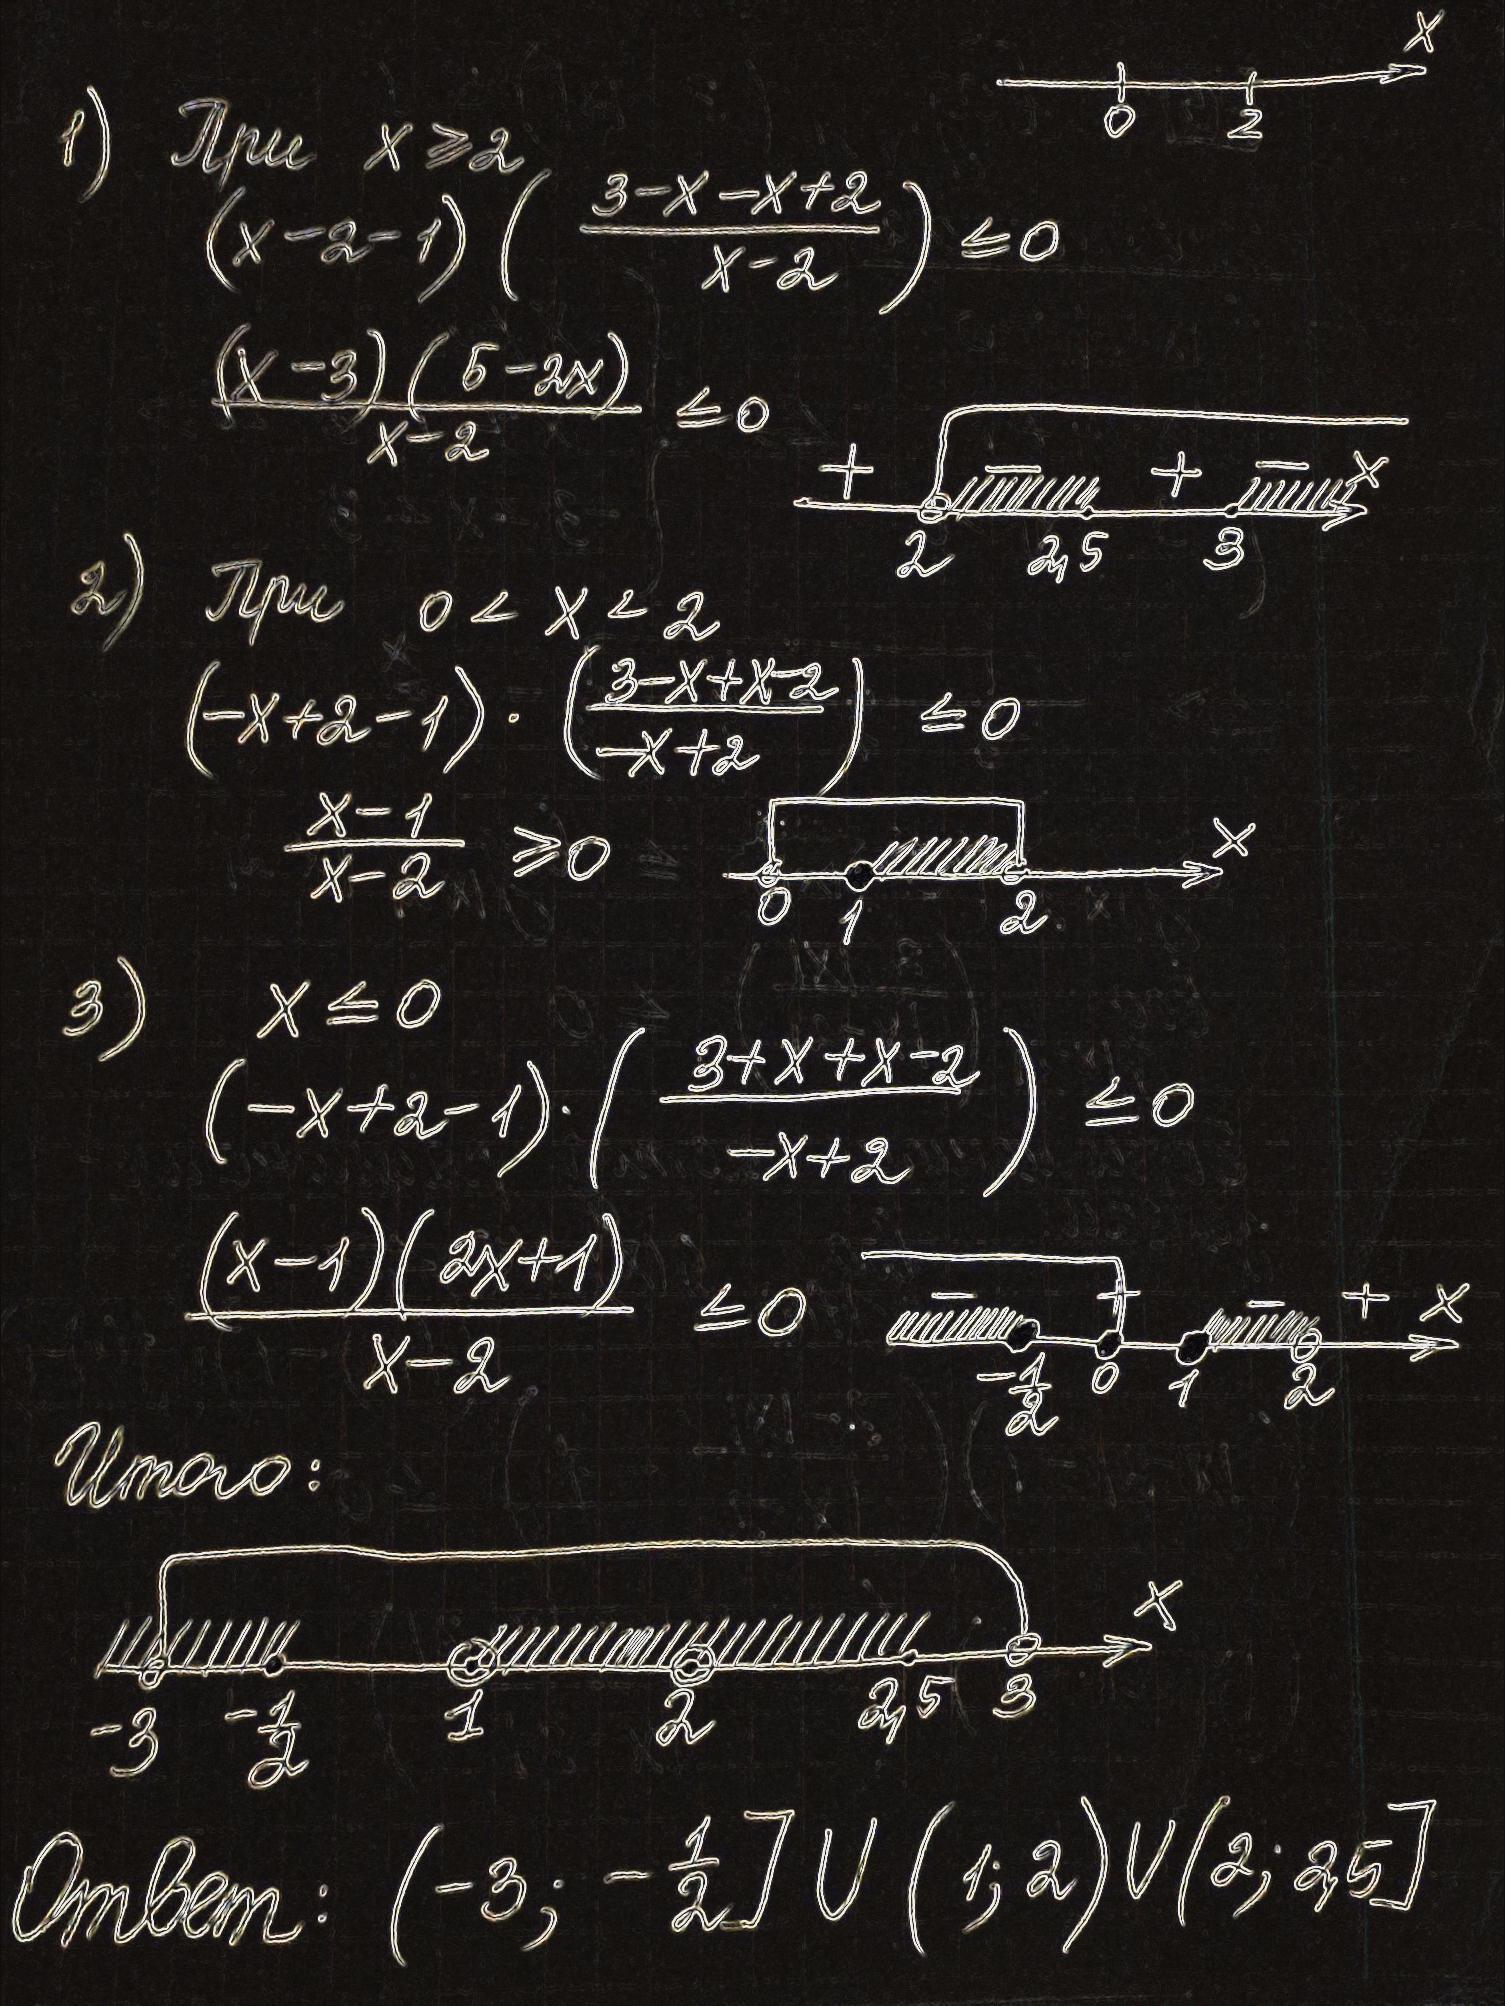 x
0 2
1) При x ≥ 2
(x-2-1)((3-x-x+2)/(x-2)) ≤ 0
((x-3)(5-2x))/(x-2) ≤ 0
+ − + − x
2 2,5 3
2) При 0 < x < 2
(-x+2-1)·((3-x+x-2)/(-x+2)) ≤ 0
(x-1)/(x-2) ≥ 0
x
0 1 2
3) x ≤ 0
(-x+2-1)·((3+x+x-2)/(-x+2)) ≤ 0
((x-1)(2x+1))/(x-2) ≤ 0
− + − + x
-1/2 0 1 2
Итого:
x
-3 -1/2 1 2 2,5 3
Ответ: (-3; -1/2] ∪ (1; 2) ∪ (2; 2,5]